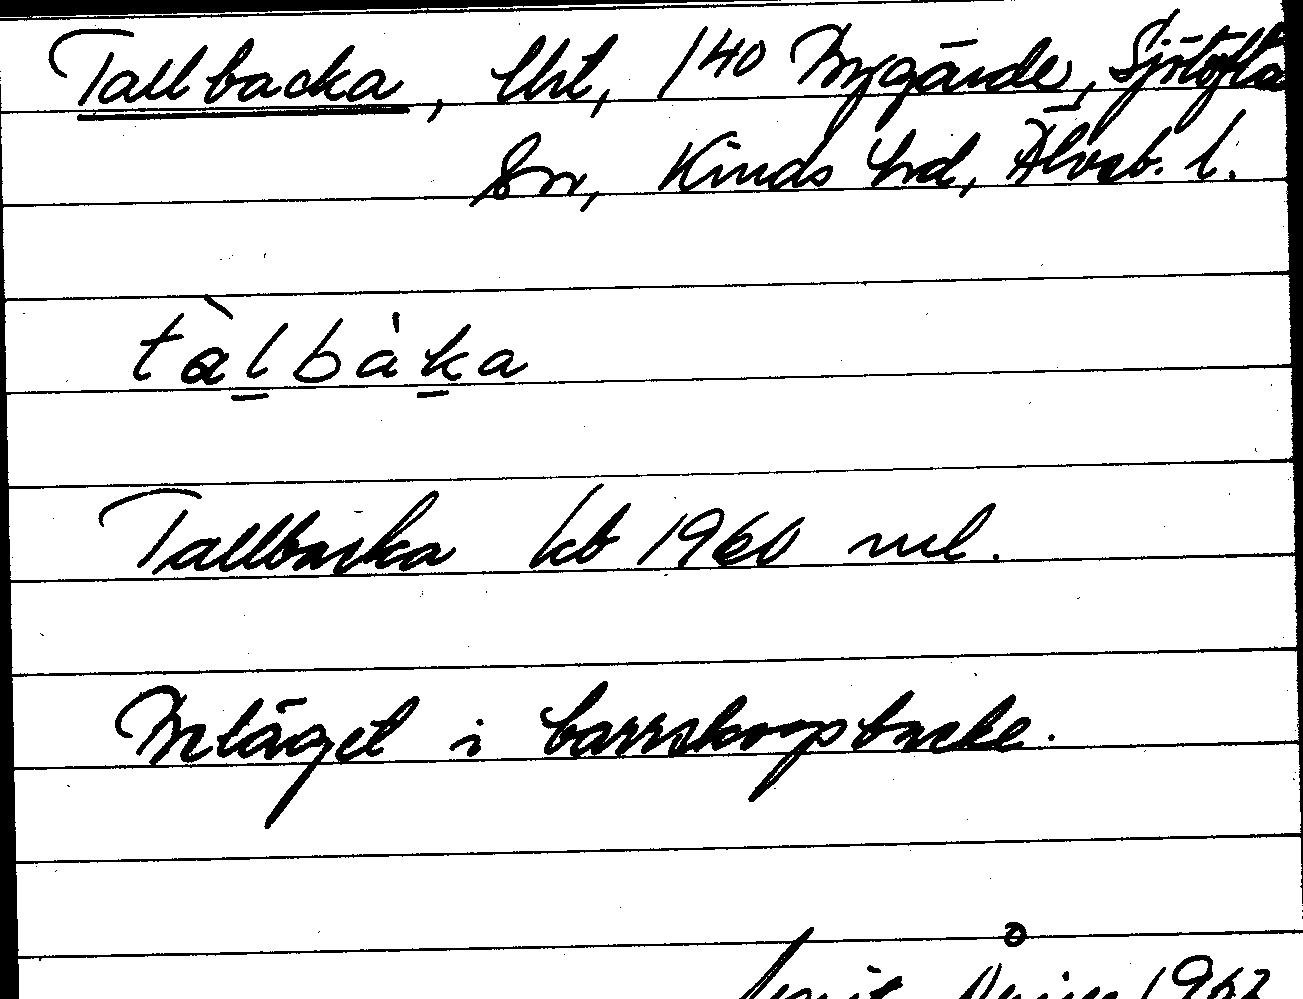 Tallbacka, lht, 140 Nygärde, Sjötofta
Sn, Kinds hd, Älvsb. l.
tàlbàka
Tallbacka kb 1960 ml.
Beläget i barrskogsbacke.
1962